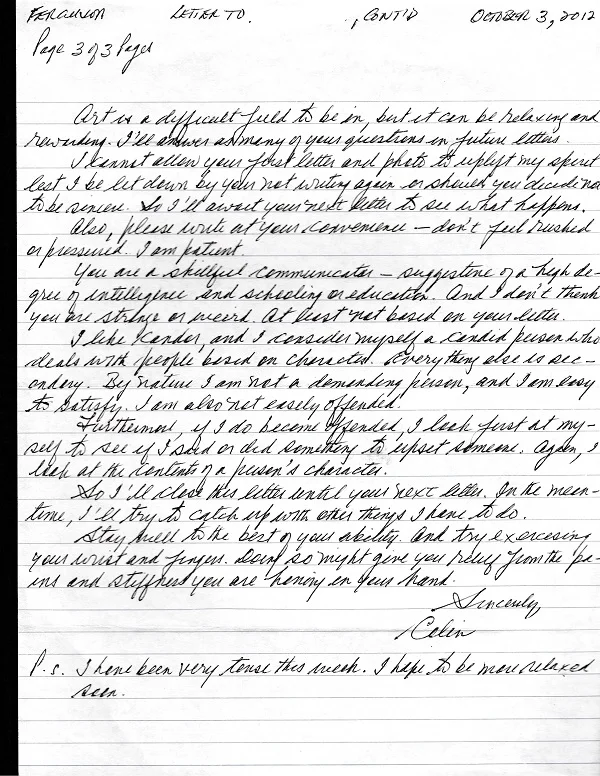 FERGUSON LETTER TO , CONT'D OCTOBER 3, 2012
Page 3 of 3 Pages
Art is a difficult field to be in, but it can be relaxing and
rewarding. I'll answer as many of your questions in future letters.
I cannot allow your first letter and photo to uplift my spirit
lest I be let down by your not writing again or should you decide not
to be sincere. So I'll await your next letter to see what happens.
Also, please write at your convenience – don't feel rushed
or pressured. I am patient.
You are a skillful communicator – suggestive of a high de-
gree of intelligence and schooling or education. And I don't think
you are strange or weird. At least not based on your letter.
I like candor, and I consider myself a candid person who
deals with people based on character. Everything else is sec-
ondary. By nature I am not a demanding person, and I am easy
to satisfy. I am also not easily offended.
Furthermore, if I do become offended, I look first at my-
self to see if I said or did something to upset someone. Again, I
look at the contents of a person's character.
So I'll close this letter until your next letter. In the mean-
time, I'll try to catch up with other things I have to do.
Stay well to the best of your ability. And try exercising
your wrist and fingers. Doing so might give you relief from the pa-
ins and stiffness you are having in your hand.
Sincerely,
Colin
P.s. I have been very tense this week. I hope to be more relaxed
soon.